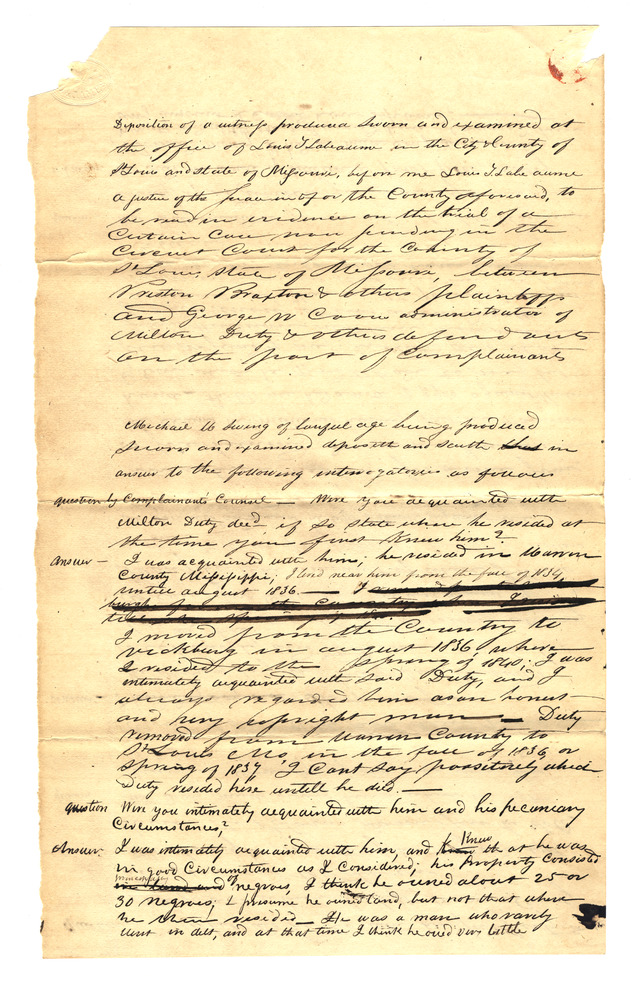 Deposition of a witness produced sworn and examined at
the office of Louis T Labeaume in the City & County of
St Louis and state of Missouri, before me Louis T Labeaume
a justice of the peace in & for the County aforesaid, to
be read in evidence on the trial of a
Certain Case now pending in the
Circuit Court for the County of
St Louis State of Missouri, between
Preston Braxton & others plaintiffs
and George W Coons administrator of
Milton Duty & others defendants
on the part of Complainants
Michael W Ewing of lawful age being produced
sworn and examined deposeth and saith that in
answer to the following interrogatories as follows
question by Complainants Counsel — Were you acquainted with
Milton Duty decd if so state where he resided at
the time you first knew him?
Answer — I was acquainted with him; he resided in Warren
County Mississippi; I lived near him from the fall of 1834,
untill august 1836. — I
I moved from the Country to
vicksburg in august 1836 where
I resided to the spring of 1840; I was
intimately acquainted with said Duty, and I
always regarded him as an honest
and very upright man — Duty
removed from Warren County to
St Louis Mo, in the fall of 1836 or
spring of 1837, I Cant say possitively which
Duty resided here untill he died. —
question Were you intimately acquainted with him and his pecuniary
Circumstances?
Answer. I was intimately acquainted with him, and knew that he was
in good Circumstances as I Considered; his Property Consisted
in land and of negroes, I think he owned about 25 or
30 negroes; I presume he owned land, but not that where
he then resided. He was a man who rarely
went in debt, and at that time I think he owed very little